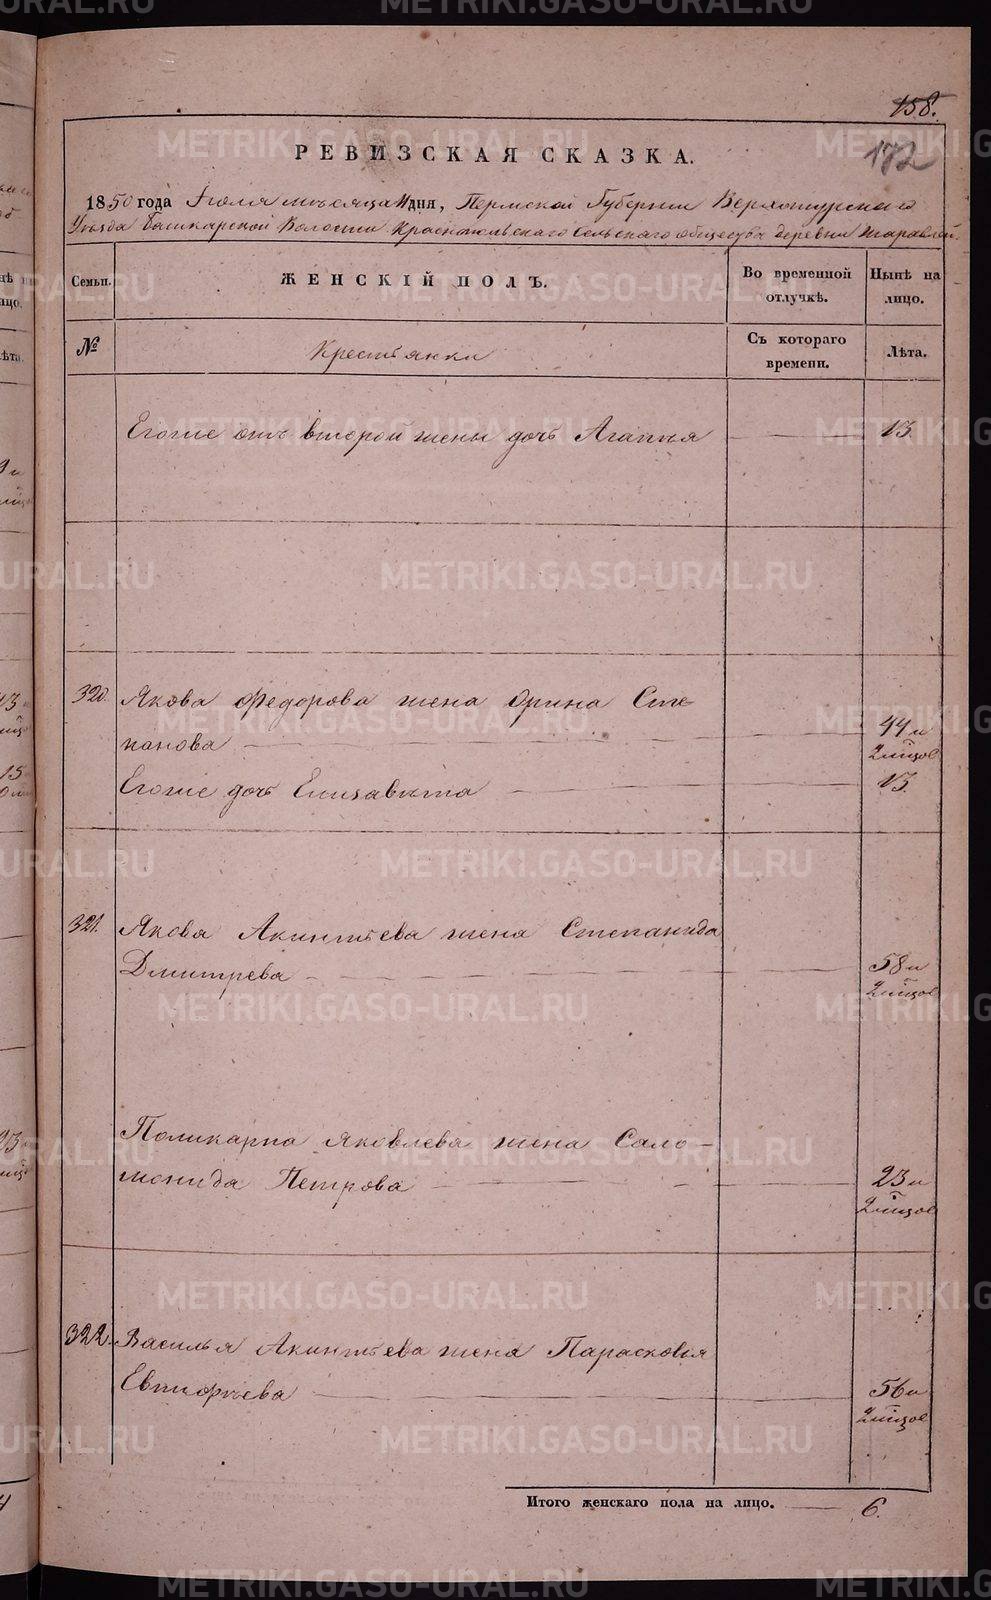 158.
172
РЕВИЗСКАЯ СКАЗКА.
1850 года Июля месяца дня, Пермской Губернии Верхотурского
Уезда Башкарской Волости Краснопольского Сельского общества деревни
Семьи. ЖЕНСКІЙ ПОЛЪ. Во временной отлучкѣ. Нынѣ на лицо.
№ Крестьянки Съ котораго времени. Лѣта.
Егоже отъ второй жены дочь Агапья 13.
320. Якова Федорова жена Орина Сте
панова 44 и
2 мѣцов
Егоже дочь Елизавѣта 13.
321. Якова Акинтьева жена Степанида
Дмитрева 58 и
2 мѣцов
Поликарпа Яковлева жена Сало-
монида Петрова 23 и
2 мѣцов
322. Василья Акинтьева жена Парасковья
Евтифѣева 56 и
2 мѣцов
Итого женскаго пола на лицо. 6.
METRIKI.GASO-URAL.RU